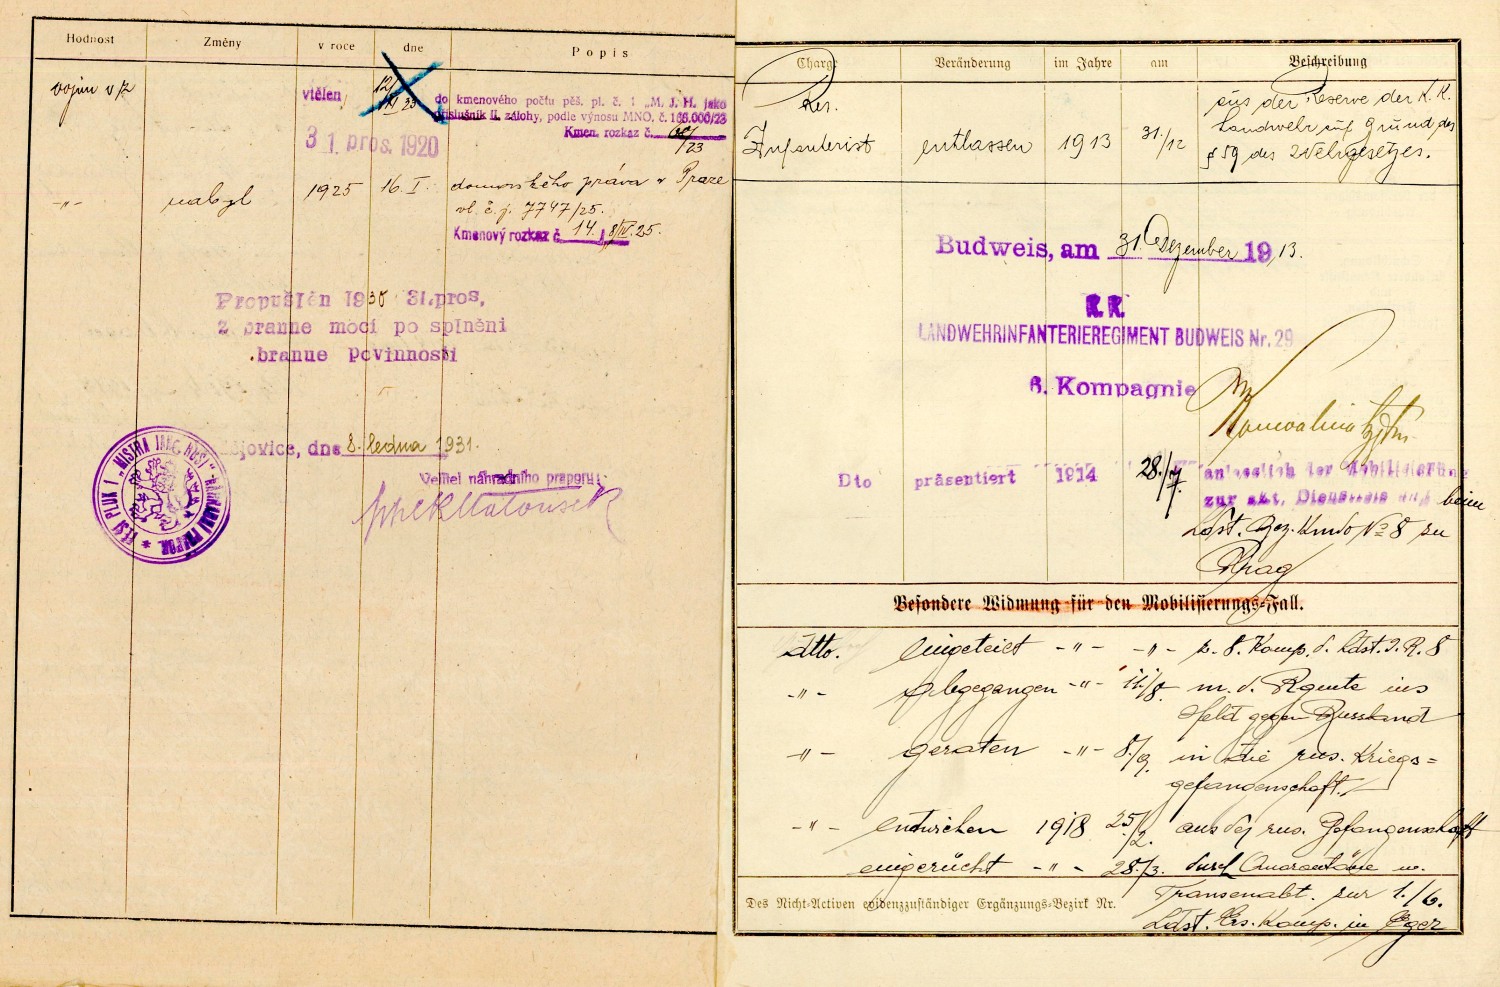 Hodnost Změny v roce dne Popis
vojín v/z vtělen 12/IX 23 do kmenového počtu pěš. pl. č. 1 „M. J. H. jako
příslušník II. zálohy, podle výnosu MNO. č. 166.000/23
31 pros. 1920 Kmen. rozkaz č. /23
-"- nabyl 1925 16. I. domovského práva v Praze
vl. č. j. 7747/25.
Kmenový rozkaz č. 14. 8/IV. 25.
Propuštěn 1930 31.pros,
z branne moci po splněni
branne povinnosti
ějovice, dne 8. ledna 1931.
Velitel náhradního praporu:
PĚŠÍ PLUK 1 „MISTRA JANA HUSI" - NÁHRADNÍ PRAPOR *
Charge Veränderung im Jahre am Beschreibung
Res. Infanterist entlassen 1913 31/12 aus der Reserve der K. K.
Landwehr auf Grund des
§ 59 des Wehrgesetzes.
Budweis, am 31. Dezember 1913.
K.K.
LANDWEHRINFANTERIEREGIMENT BUDWEIS Nr. 29
6. Kompagnie
Dto präsentiert 1914 28./7. anlässlich der Mobilisierung
zur akt. Dienstleistung beim
Ldst. Bez. Kmdo No 8 zu
Prag
Besondere Widmung für den Mobilisierungs-Fall.
dtto. eingeteilt -"- -"- z. 8. Komp. d. Ldst. I. R. 8
-"- abgegangen -"- 11./8. m. d. Rgmte ins
Feld gegen Russland
-"- geraten -"- 8./9. in die rus. Kriegs=
gefangenschaft.
-"- entwichen 1918 25./2. aus der rus. Gefangenschaft
eingerückt -"- 28./3. durch Quarantäne u.
Des Nicht-Activen evidenzzuständiger Ergänzungs-Bezirk Nr. Transenabt. zur 1./6.
Ldst. Ers. Komp. in Eger